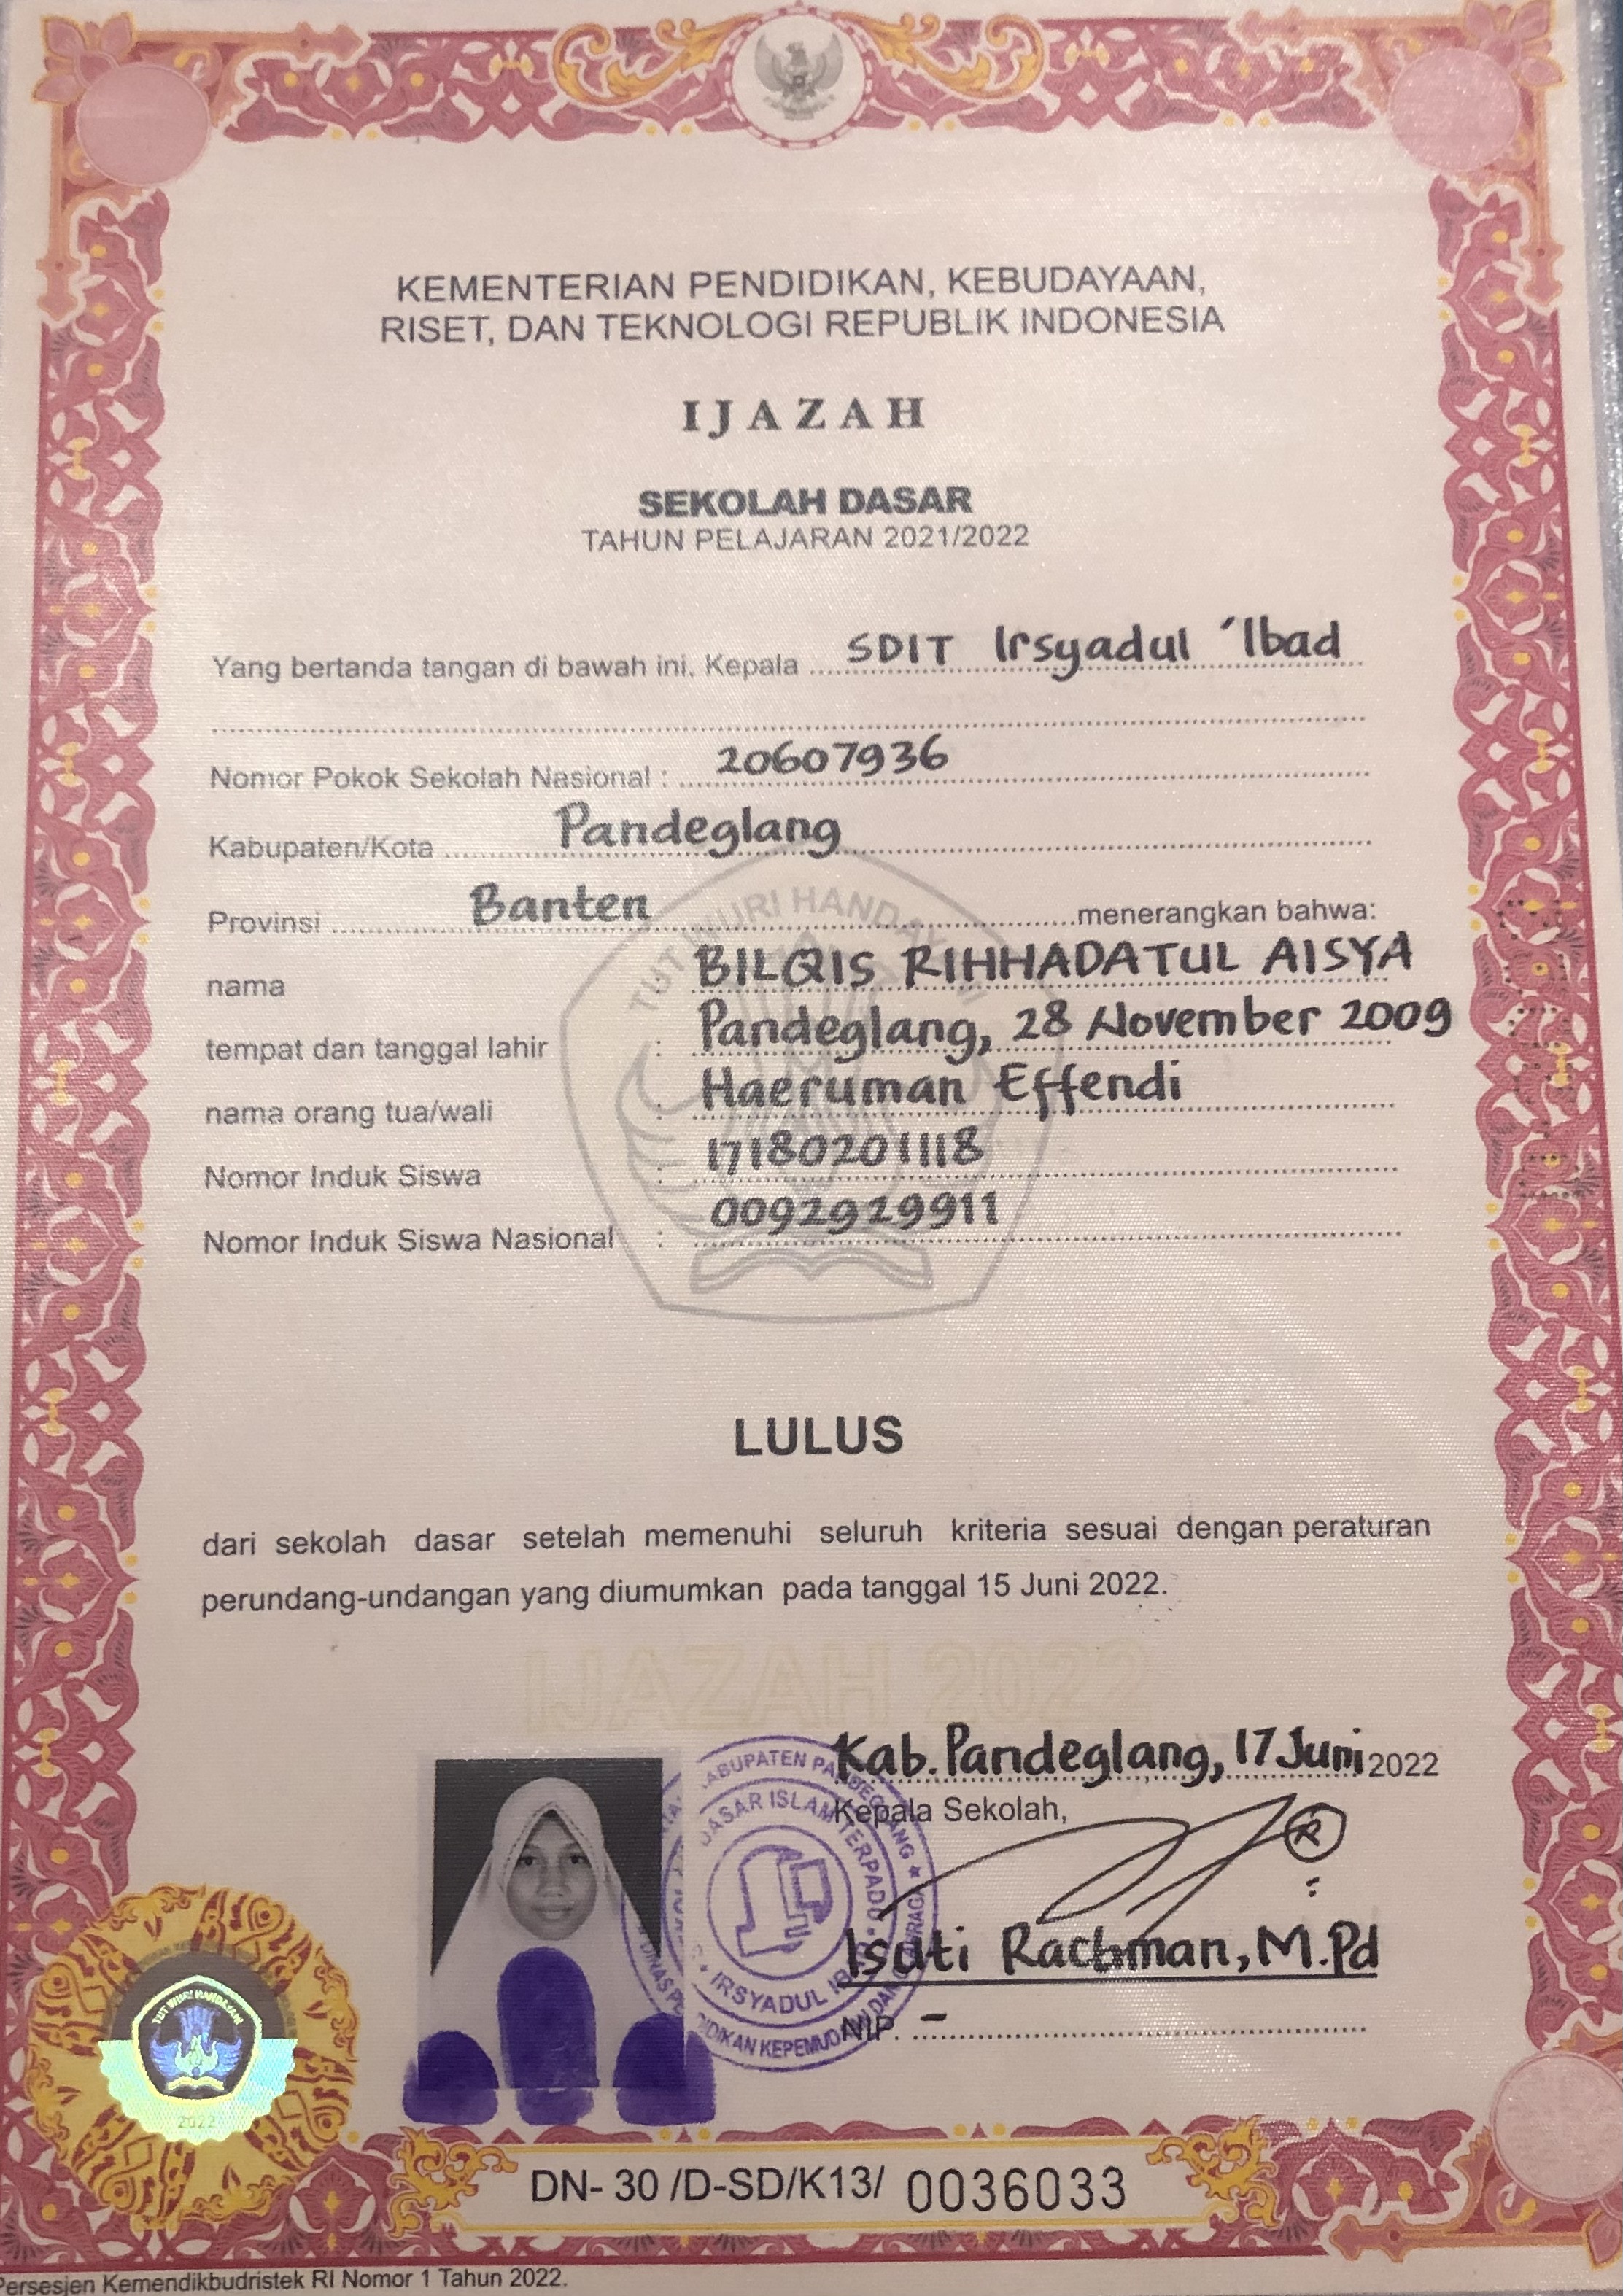 KEMENTERIAN PENDIDIKAN, KEBUDAYAAN,
RISET, DAN TEKNOLOGI REPUBLIK INDONESIA
IJAZAH
SEKOLAH DASAR
TAHUN PELAJARAN 2021/2022
Yang bertanda tangan di bawah ini, Kepala SDIT Irsyadul 'Ibad
Nomor Pokok Sekolah Nasional : 20607936
Kabupaten/Kota Pandeglang
Provinsi Banten menerangkan bahwa:
nama BILQIS RIHHADATUL AISYA
tempat dan tanggal lahir : Pandeglang, 28 November 2009
nama orang tua/wali : Haeruman Effendi
Nomor Induk Siswa : 17180201118
Nomor Induk Siswa Nasional : 0092929911
TUT WURI HANDAYANI
LULUS
dari sekolah dasar setelah memenuhi seluruh kriteria sesuai dengan peraturan
perundang-undangan yang diumumkan pada tanggal 15 Juni 2022.
IJAZAH 2022
Kab. Pandeglang, 17 Juni 2022
Kepala Sekolah,
KABUPATEN PANDEGLANG
DASAR ISLAM TERPADU
IRSYADUL IBAD
Isuti Rachman, M.Pd
NIP. -
TUT WURI HANDAYANI
2022
DN- 30 /D-SD/K13/ 0036033
Persesjen Kemendikbudristek RI Nomor 1 Tahun 2022.